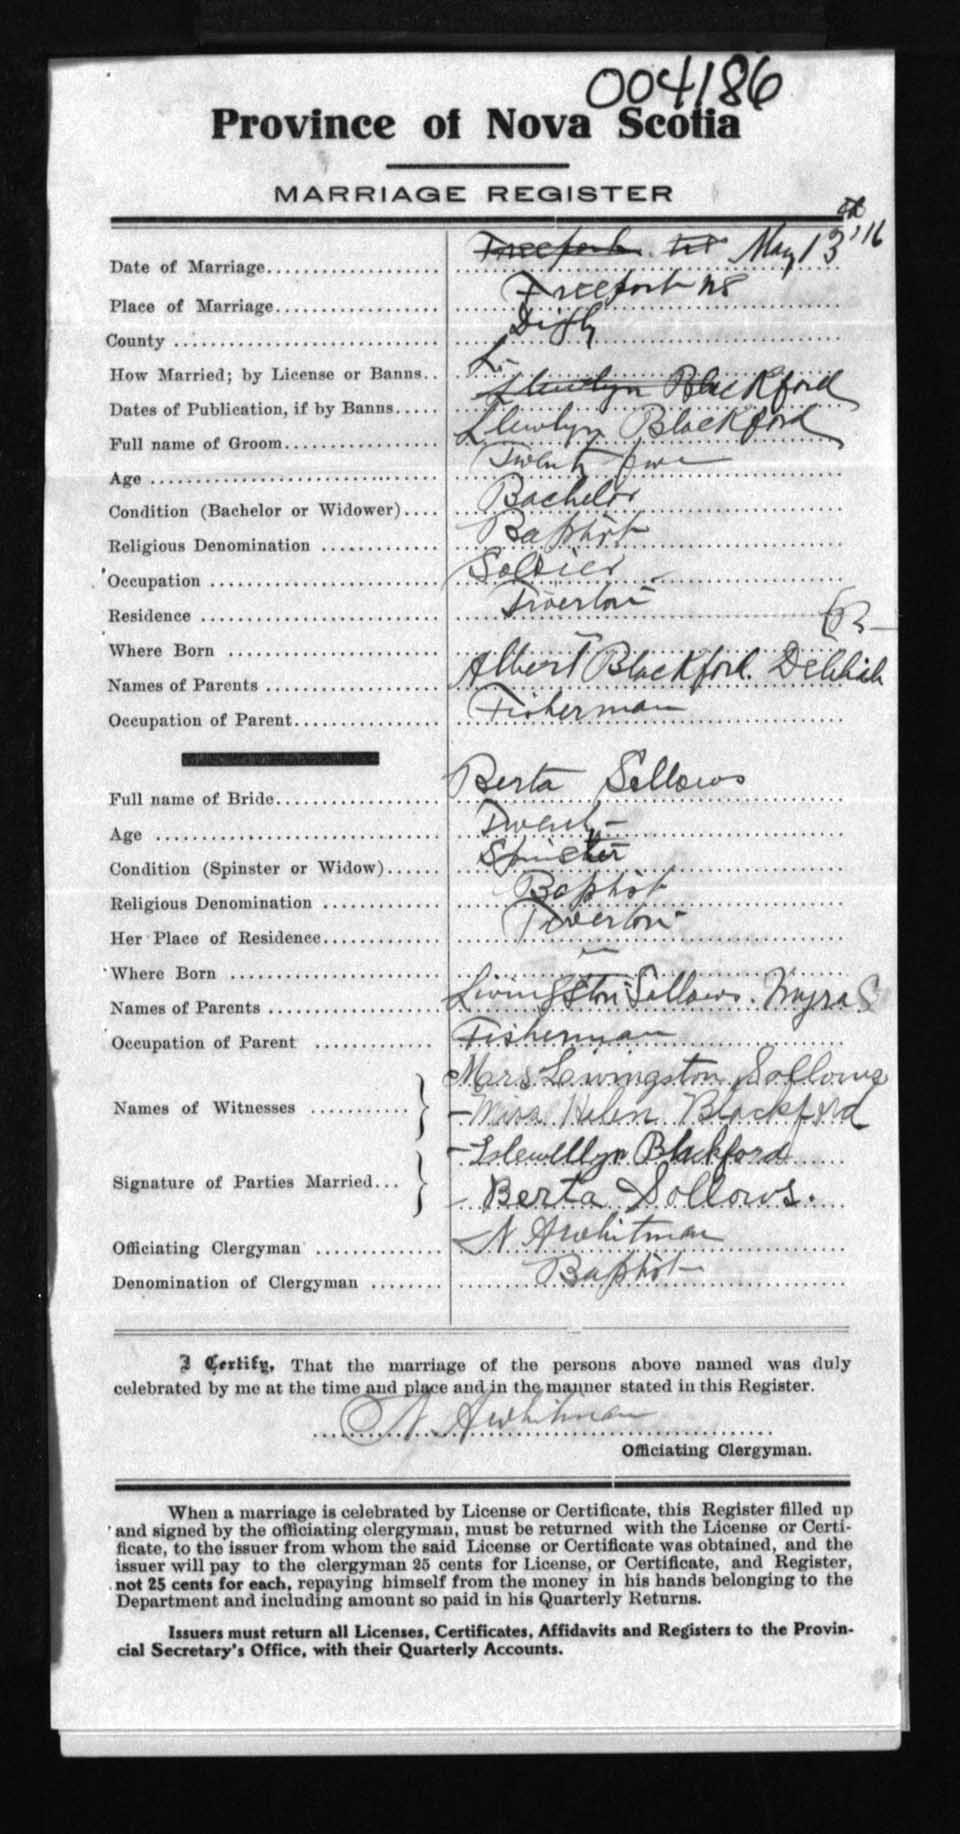 004186
Province of Nova Scotia
MARRIAGE REGISTER
Date of Marriage Freeport NS May 13th '16
Place of Marriage Freeport NS
County Digby
How Married; by License or Banns L.
Dates of Publication, if by Banns Llewlyn Blackford
Full name of Groom Llewlyn Blackford
Age Twenty five
Condition (Bachelor or Widower) Bachelor
Religious Denomination Baptist
Occupation Soldier
Residence Tiverton
Where Born "
Names of Parents Albert Blackford. Delilah B
Occupation of Parent Fisherman
Full name of Bride Berta Sollows
Age Twenty
Condition (Spinster or Widow) Spinster
Religious Denomination Baptist
Her Place of Residence Tiverton
Where Born "
Names of Parents Livingston Sollows. Myra S
Occupation of Parent Fisherman
Names of Witnesses Mrs Livingston Sollows
Helen Blackford
Signature of Parties Married Llewelllyn Blackford
Berta Sollows.
Officiating Clergyman N A Whitman
Denomination of Clergyman Baptist
I Certify, That the marriage of the persons above named was duly
celebrated by me at the time and place and in the manner stated in this Register.
N A Whitman
Officiating Clergyman.
When a marriage is celebrated by License or Certificate, this Register filled up
and signed by the officiating clergyman, must be returned with the License or Certi-
ficate, to the issuer from whom the said License or Certificate was obtained, and the
issuer will pay to the clergyman 25 cents for License, or Certificate, and Register,
not 25 cents for each, repaying himself from the money in his hands belonging to the
Department and including amount so paid in his Quarterly Returns.
Issuers must return all Licenses, Certificates, Affidavits and Registers to the Provin-
cial Secretary's Office, with their Quarterly Accounts.